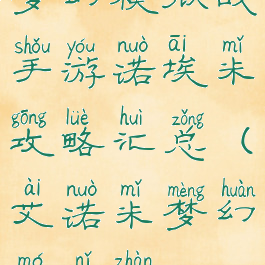 shǒu yóu nuò āi mǐ
手游诺埃米
gōng lüè huì zǒng
攻略汇总（
ài nuò mǐ mèng huàn
艾诺米梦幻
mó nǐ zhàn